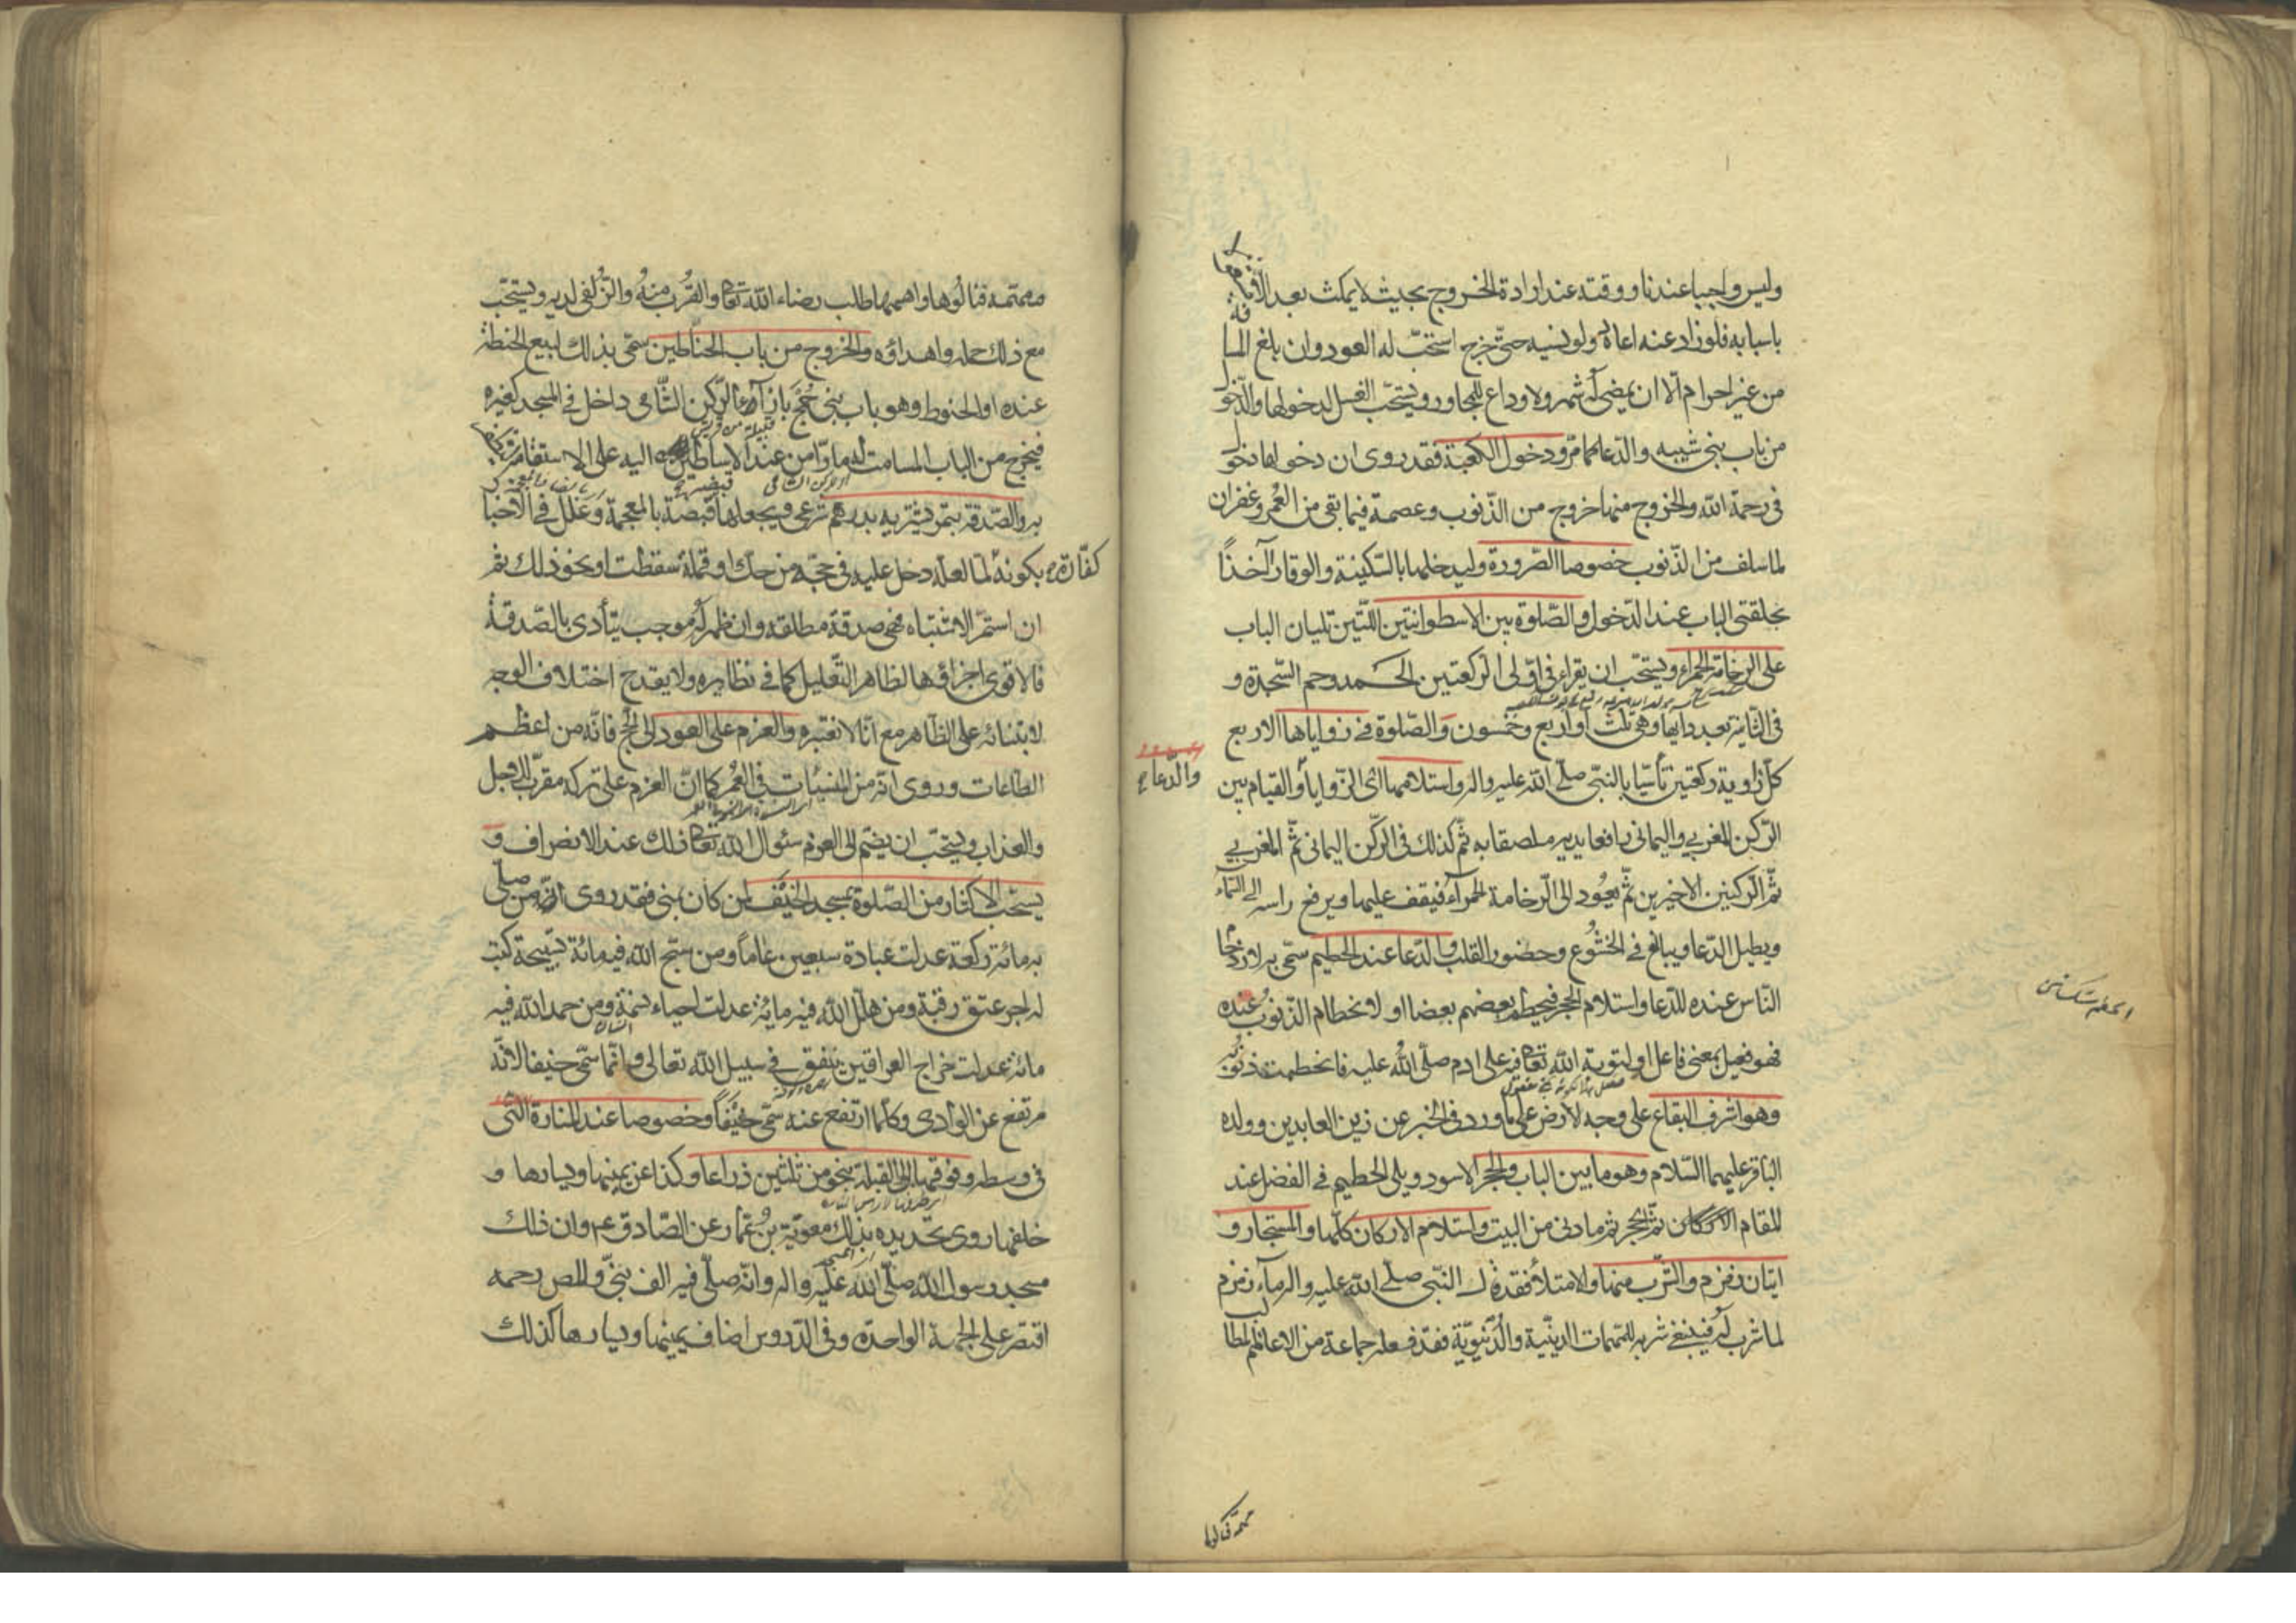 وليس واجبا عندنا ووقته عند ارادة الخروج بحيث لا يمكث بعد الافة
باسبابه فلو زاد عنه اعاده ولو نسيه حتى خرج استحب له العود وان بلغ المسا
من غير احرام الا ان يمضى له شهر ولا وداع للمجاور ويستحب الغسل لدخولها والدخو
من باب بنى شيبه والدعا كما مر ودخول الكعبة فقد روى ان دخولها دخو
فى رحمة الله والخروج منها خروج من الذنوب وعصمة فيما بقى من العمر وغفران
لما سلف من الذنوب خصوصا الصرورة وليدخلها بالسكينة والوقار آخذاً
بحلقتى الباب عند الدخول والصلوة بين الاسطوانتين اللتين تليان الباب
على الرخامة الحمراء ويستحب ان يقراء فى اولى الركعتين الحمد وحم السجدة و
فى الثانية بعدد ايها وهى ثلث او اربع وخمسون والصلوة فى زواياها الاربع
كل زاوية ركعتين تأسيا بالنبى صلى الله عليه واله واستلامها اى الزوايا والقيام بين
والدعاء
الركن المغربى واليمانى رافعا يديه ملصقا به ثم كذلك فى الركن اليمانى ثم المغربى
ثم الركنين الاخيرين ثم يعود الى الرخامة الحمراء فيقف عليها ويرفع راسه الى السماء
ويطيل الدعا ويبالغ فى الخشوع وحضور القلب والدعا عند الحطيم سمى به لازدحام
الناس عنده للدعا واستلام الحجر فيحطم بعضهم بعضا او لانحطام الذنوب عنده
فهو فعيل بمعنى فاعل او لتوبة الله تعالى فيه على ادم صلى الله عليه فانحطمت ذنوبه
وهو اشرف البقاع على وجه الارض على ما ورد فى الخبر عن زين العابدين وولده
الباقر عليهما السلام وهو ما بين الباب والحجر الاسود ويلى الحطيم فى الفضل عند
المقام الاركان ثم الحجر ثم ما دنى من البيت واستلام الاركان كلها والمستجار و
اتيان زمزم والشرب منها والامتلاء فقد قال النبى صلى الله عليه واله ماء زمزم
لما شرب له فينبغى شربه للمهمات الدينية والدنيوية فقد فعله جماعة من الاعاظم لمطا
مهمة فنالوها
مهمة فنالوها واهمها طلب رضاء الله تعالى والقرب منه والزلفى لديه ويستحب
مع ذلك حمله واهداؤه والخروج من باب الحناطين سمى بذلك لبيع الحنطة
عنده او الحنوط وهو باب بنى جمح بازآء الركن الشامى داخل فى المسجد كغيره
قبيلة من قريش
فيخرج من الباب المسامت له مارا من عند الاساطين اليه على الاستقامة
بر والصدقة بتمر يشتريه بدرهم شرعى ويجعلها قبضة بالمعجمة وعلل فى الاخبا
كفارة بكونه لما لعله دخل عليه فى حجه من حك او قملة سقطت او نحو ذلك ثم
ان استمر الاشتباه فهى صدقة مطلقه وان ظهر له موجب يتأدى بالصدقة
فالاقوى اجزاؤها لظاهر التعليل كما فى نظايره ولا يقدح اختلاف الوجه
لابتنائه على الظاهر مع انا لا نعتبره والعزم على العود الى الحج فانه من اعظم
الطاعات وروى انه من المنسئات فى العمر كما ان العزم على تركه مقرب للاجل
والعذاب ويستحب ان يضم الى العزم سئوال الله تعالى ذلك عند الانصراف و
يستحب الاكثار من الصلوة بمسجد الخيف لمن كان بمنى فقد روى انه من صلى
به مائة ركعة عدلت عبادة سبعين عاماً ومن سبح الله فيه مائة تسبيحة كتب
له اجر عتق رقبة ومن هلل الله فيه مائة عدلت احياء نسمة ومن حمد الله فيه
مائة عدلت خراج العراقين ينفق فى سبيل الله تعالى وانما سمى خيفا لانه
مرتفع عن الوادى وكلما ارتفع عنه سمى خيفاً وخصوصا عند المنارة التى
فى وسطه وفوقها الى القبلة بنحو من ثلثين ذراعا وكذا عن يمينها ويسارها و
خلفها روى تحديده بذلك معوية بن عمار عن الصادق ع وان ذلك
مسجد رسول الله صلى الله عليه واله وانه صلى فيه الف نبى والمص رحمه
اقتصر على الجهة الواحدة وفى الدروس اضاف يمينها ويسارها كذلك